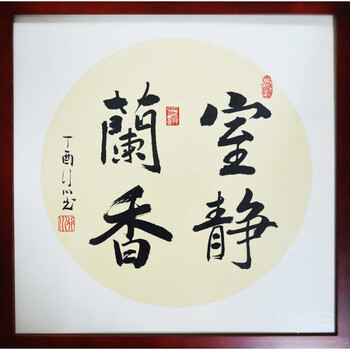 室静
蘭香
丁酉